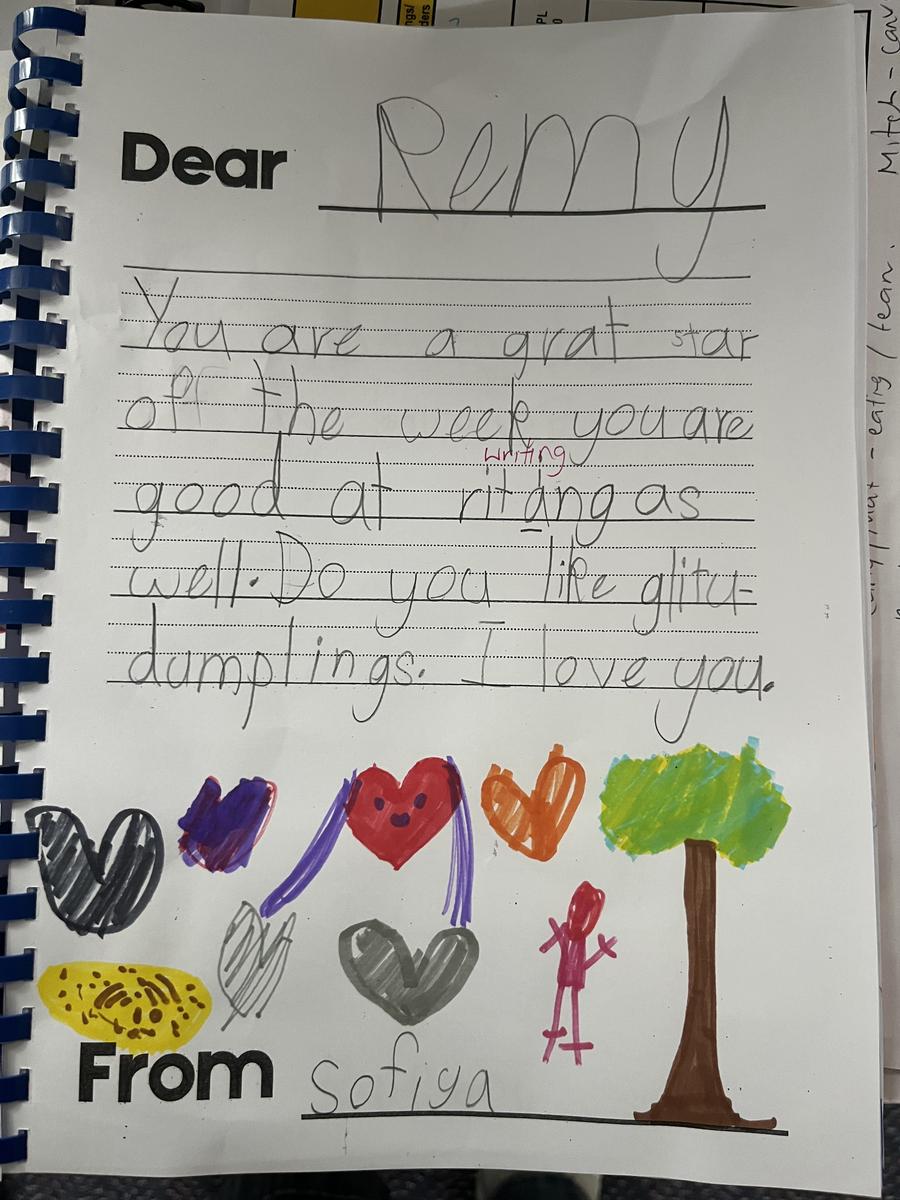 Dear Remy
You are a grat star
off the week you are
writing
good at ritang as
well. Do you like glitu-
dumplings. I love you.
From Sofiya
ngs/
ders
PL
Mitch - Canv
- eating / tean.